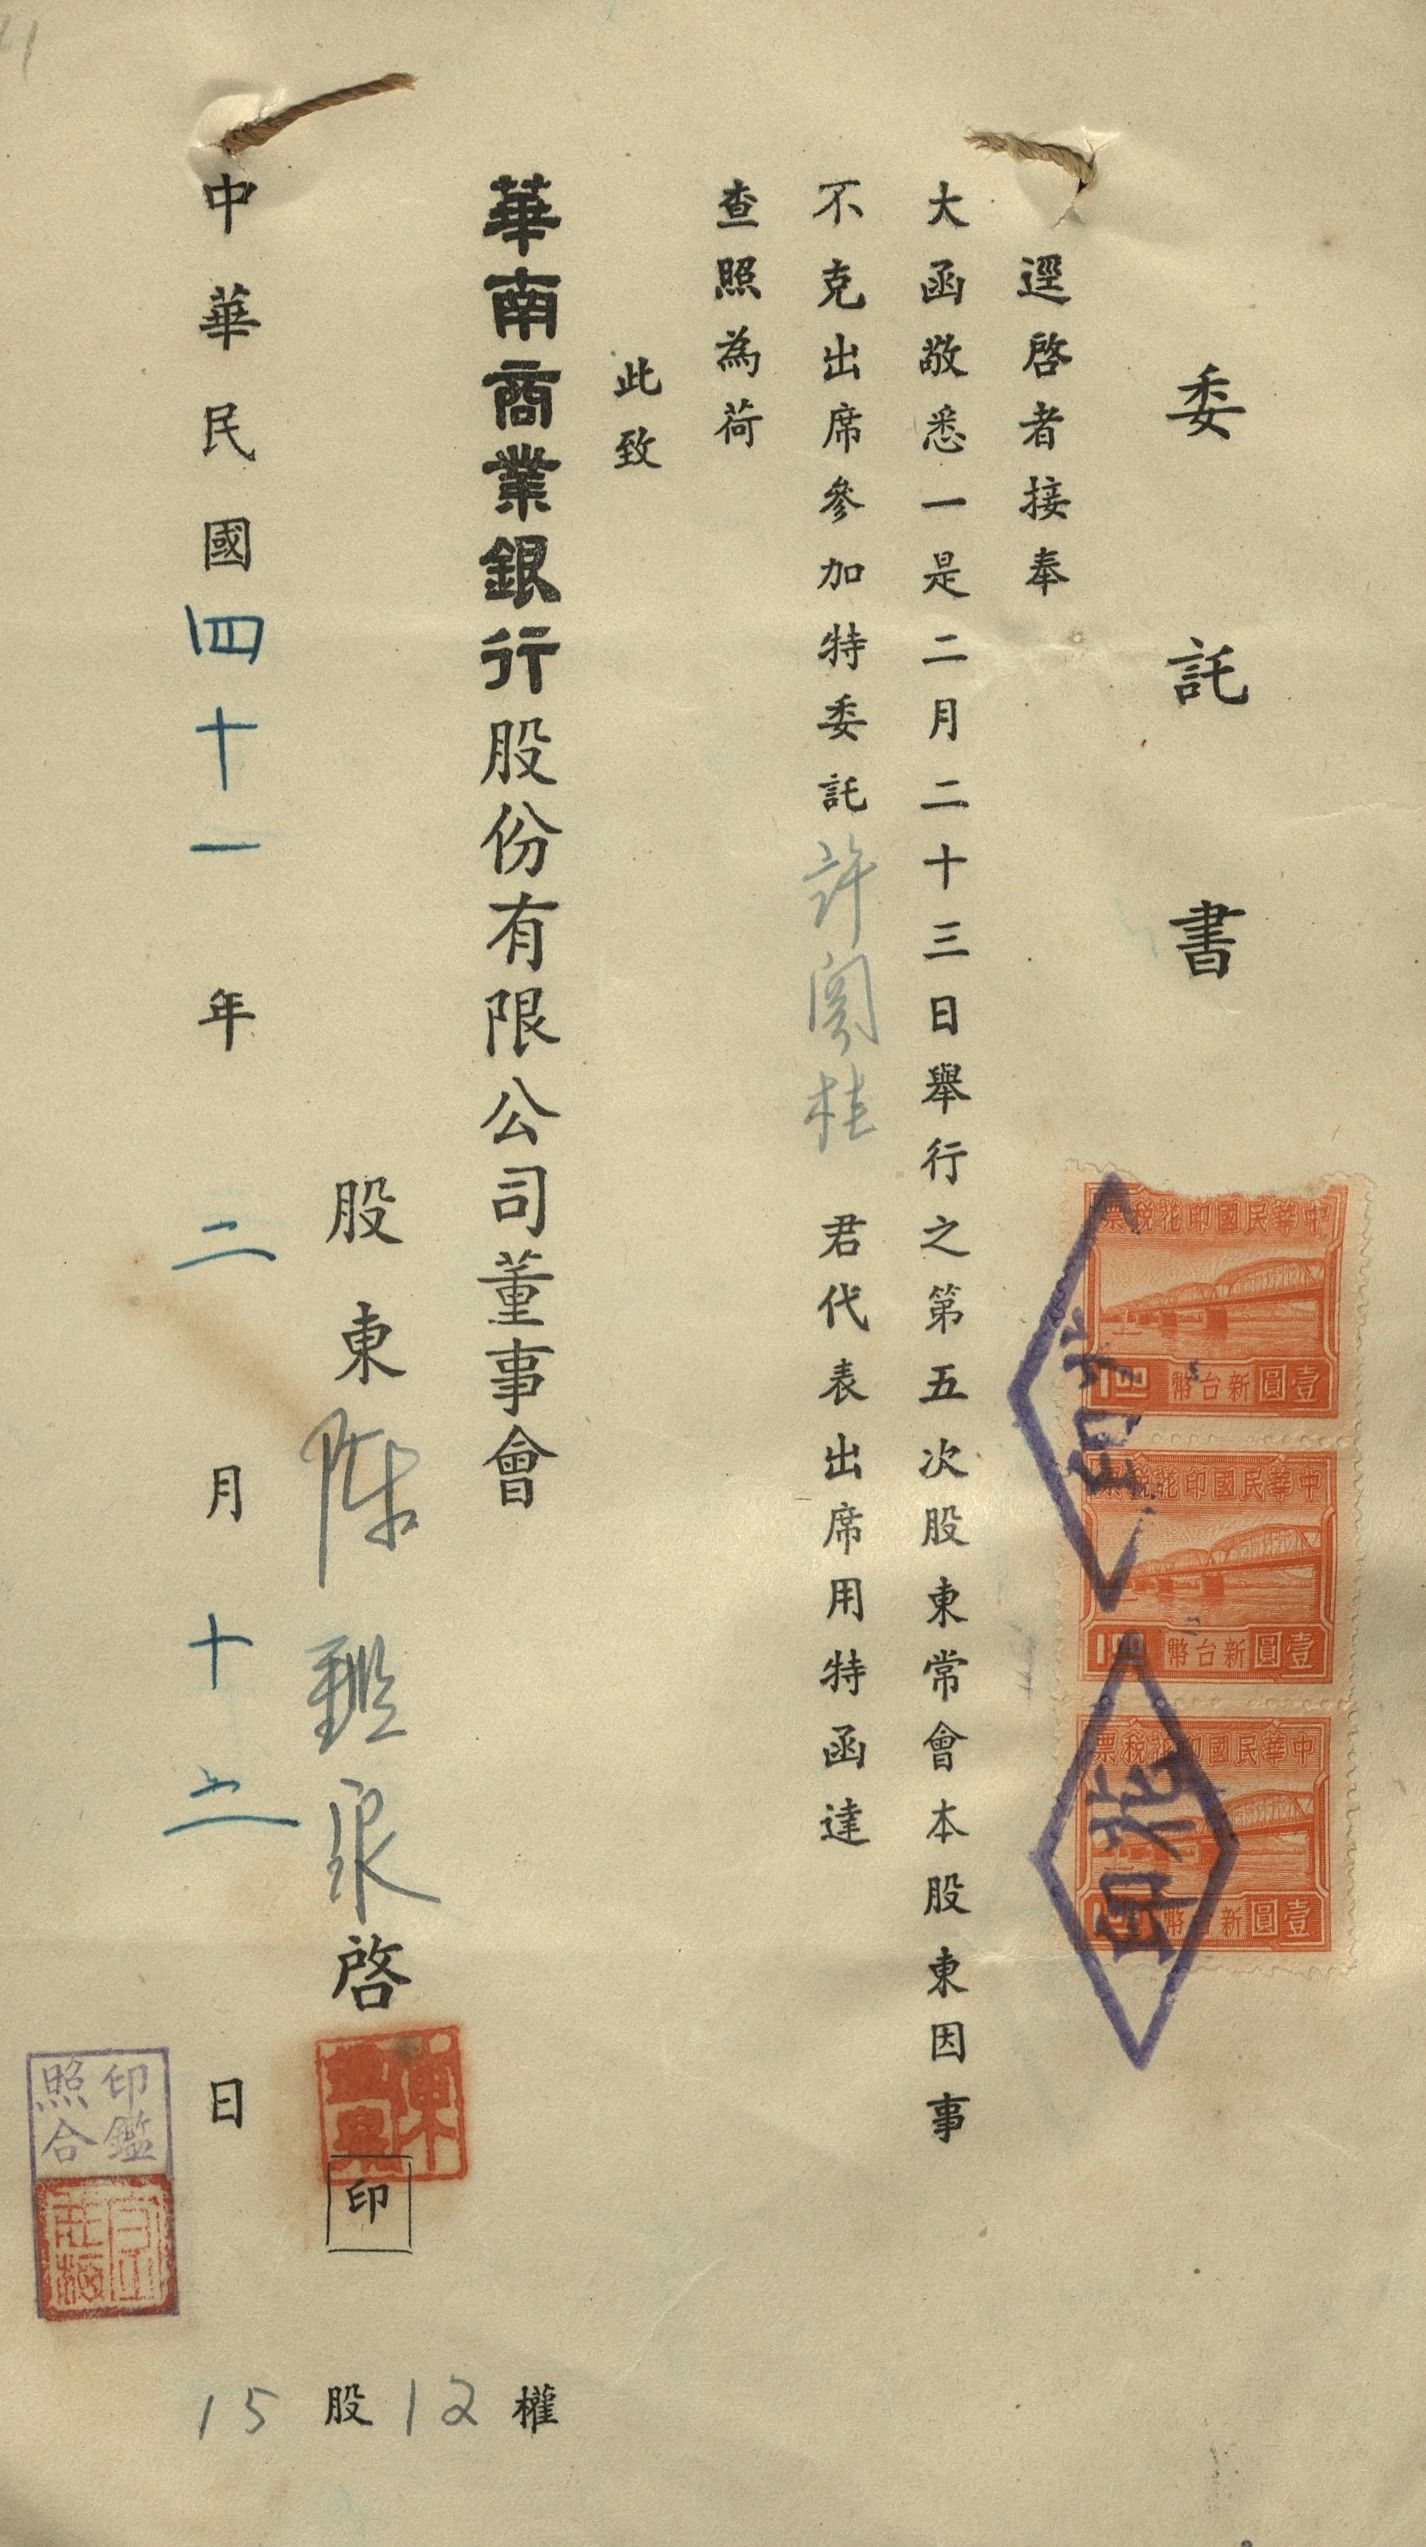 委託書
逕啓者接奉
大函敬悉一是二月二十三日舉行之第五次股東常會本股東因事
不克出席參加特委託許桂君代表出席用特函達
查照為荷
此致
華南商業銀行股份有限公司董事會
股東陳啓
印
中華民國四十一年二月十二日
15股12權
中華民國印花稅票
1.00 新台幣壹圓
中華民國印花稅票
1.00 新台幣壹圓
中華民國印花稅票
新台幣壹圓
印花
印花
印鑑
照合